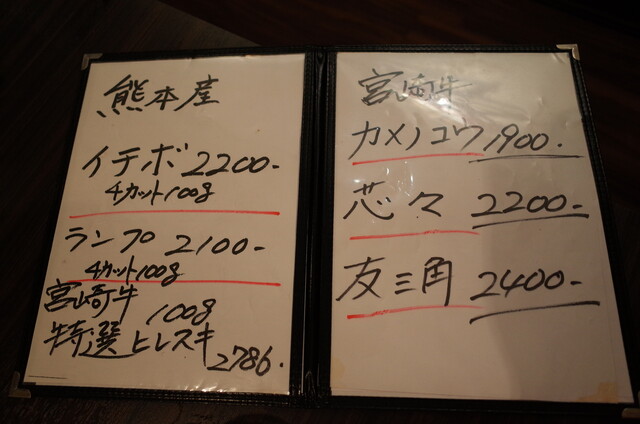 熊本産
イチボ 2200-
4カット100g
ランプ 2100-
4カット100g
宮崎牛
100g
特選ヒレスキ
2786.
宮崎牛
カメノコウ 1900.
芯々 2200-
友三角 2400-